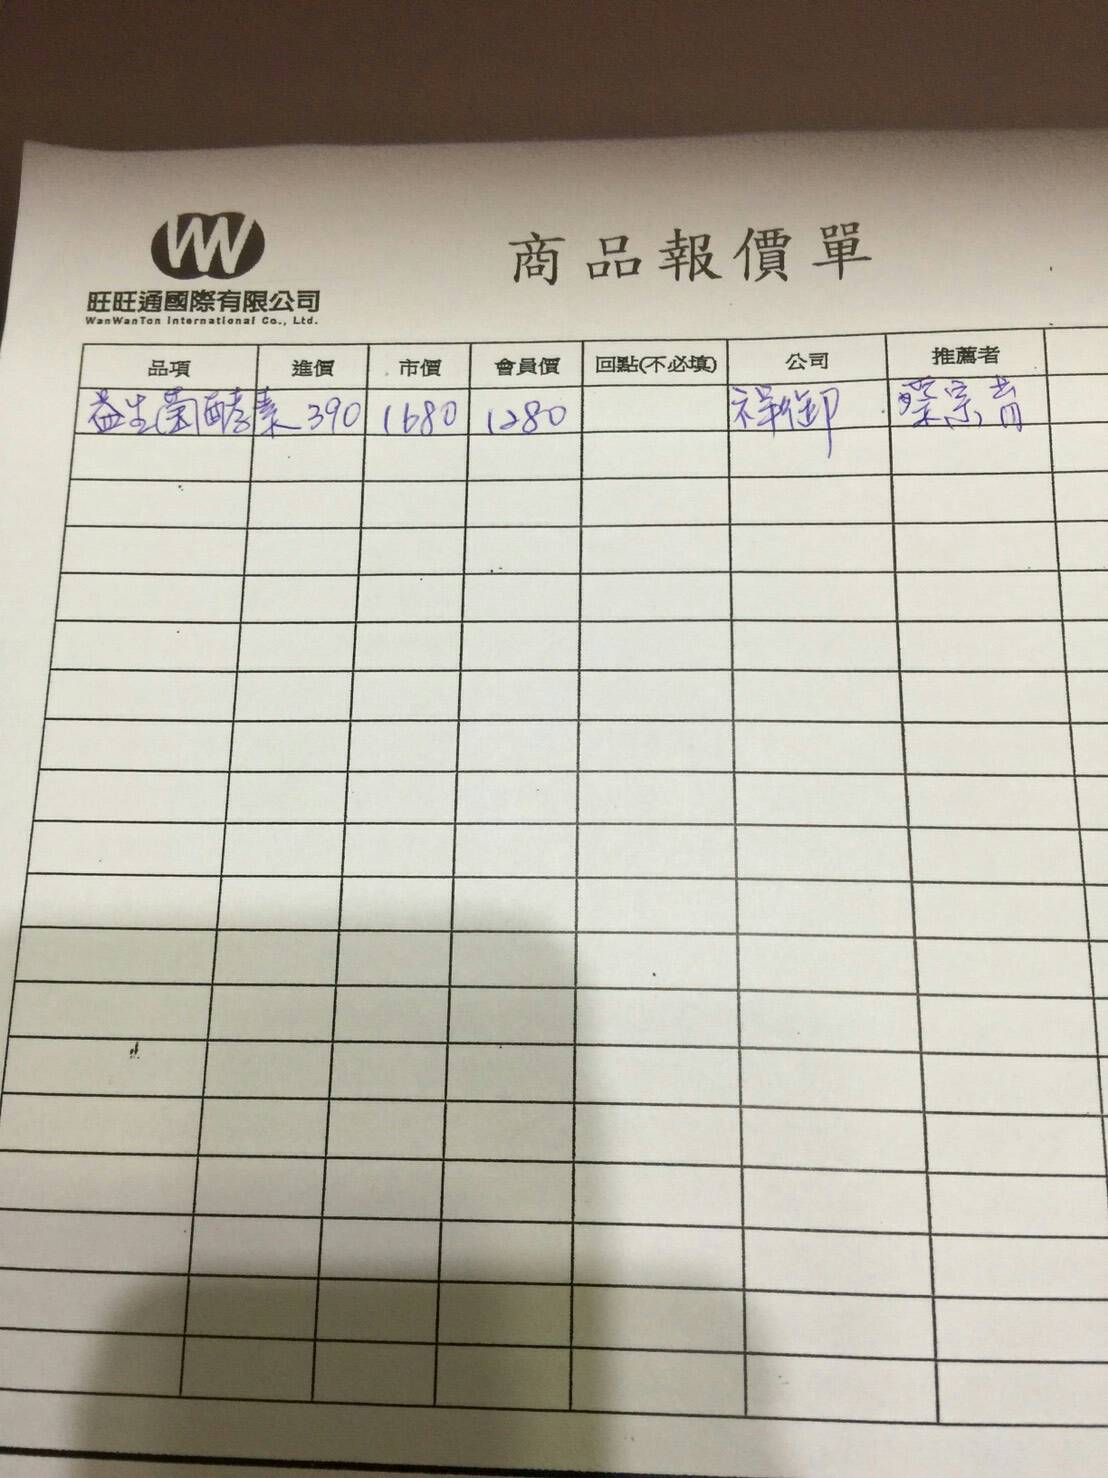 WW
旺旺通國際有限公司
WanWanTon International Co., Ltd.
商品報價單
品項 進價 市價 會員價 回點(不必填) 公司 推薦者
益生菌酵素 390 1680 1280 祥御 蔡宗育